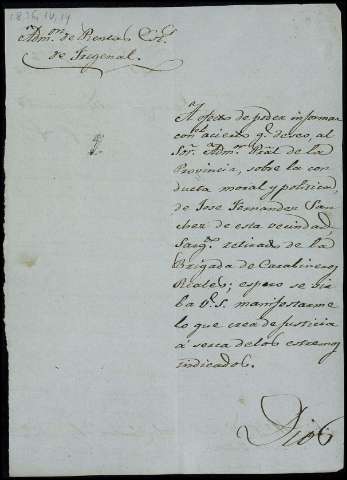 1836, 10, 14
Admon. de Rentas Est.
de Fregenal.
A efecto de poder informar
con el acierto q.e deseo, al
Sor. Admor. Pral de la
Provincia, sobre la con
ducta moral y politica,
de Jose Fernandez San
chez de esta vecindad,
Sarg.to retirado de la
Brigada de Carabineros
Reales; espero se sir
ba V.S. manifestarme
lo que crea de justicia
á serca de los estremos
indicados.
Dios